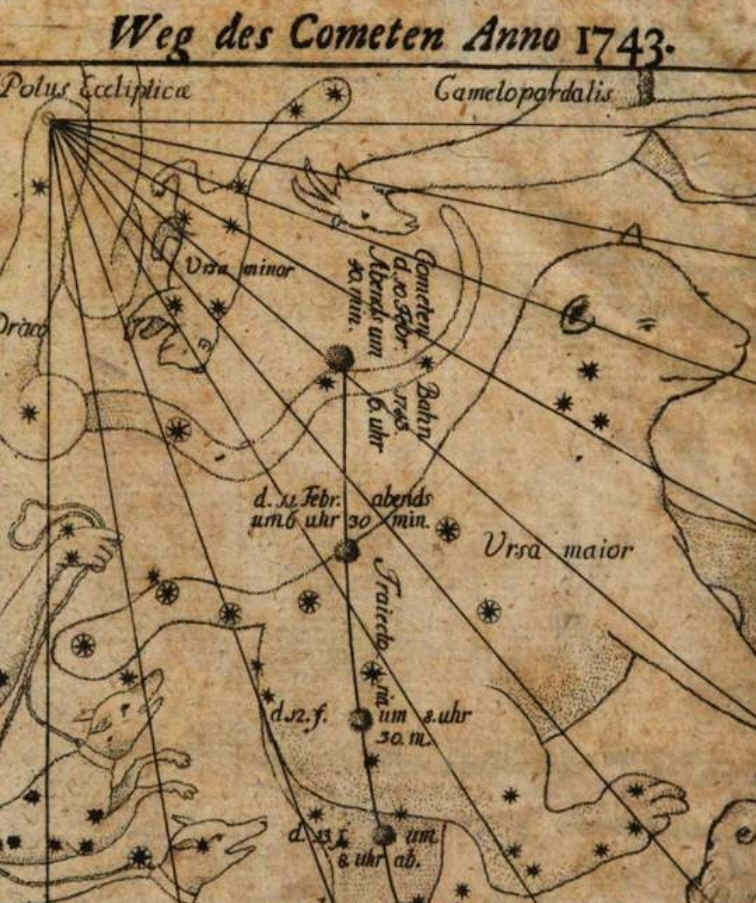 Weg des Cometen Anno 1743.
Polus Ecclipticæ
Camelopardalis
Vrsa minor
Draco
Cometen Bahn
d. 10. Febr. 1743.
Abends um 6 uhr
40. min.
d. 11. Febr. abends
um 6 uhr 30 min.
Vrsa maior
Traiectoria
d. 12. f. um 8. uhr
30. m.
d. 13. f. um
8 uhr ab.